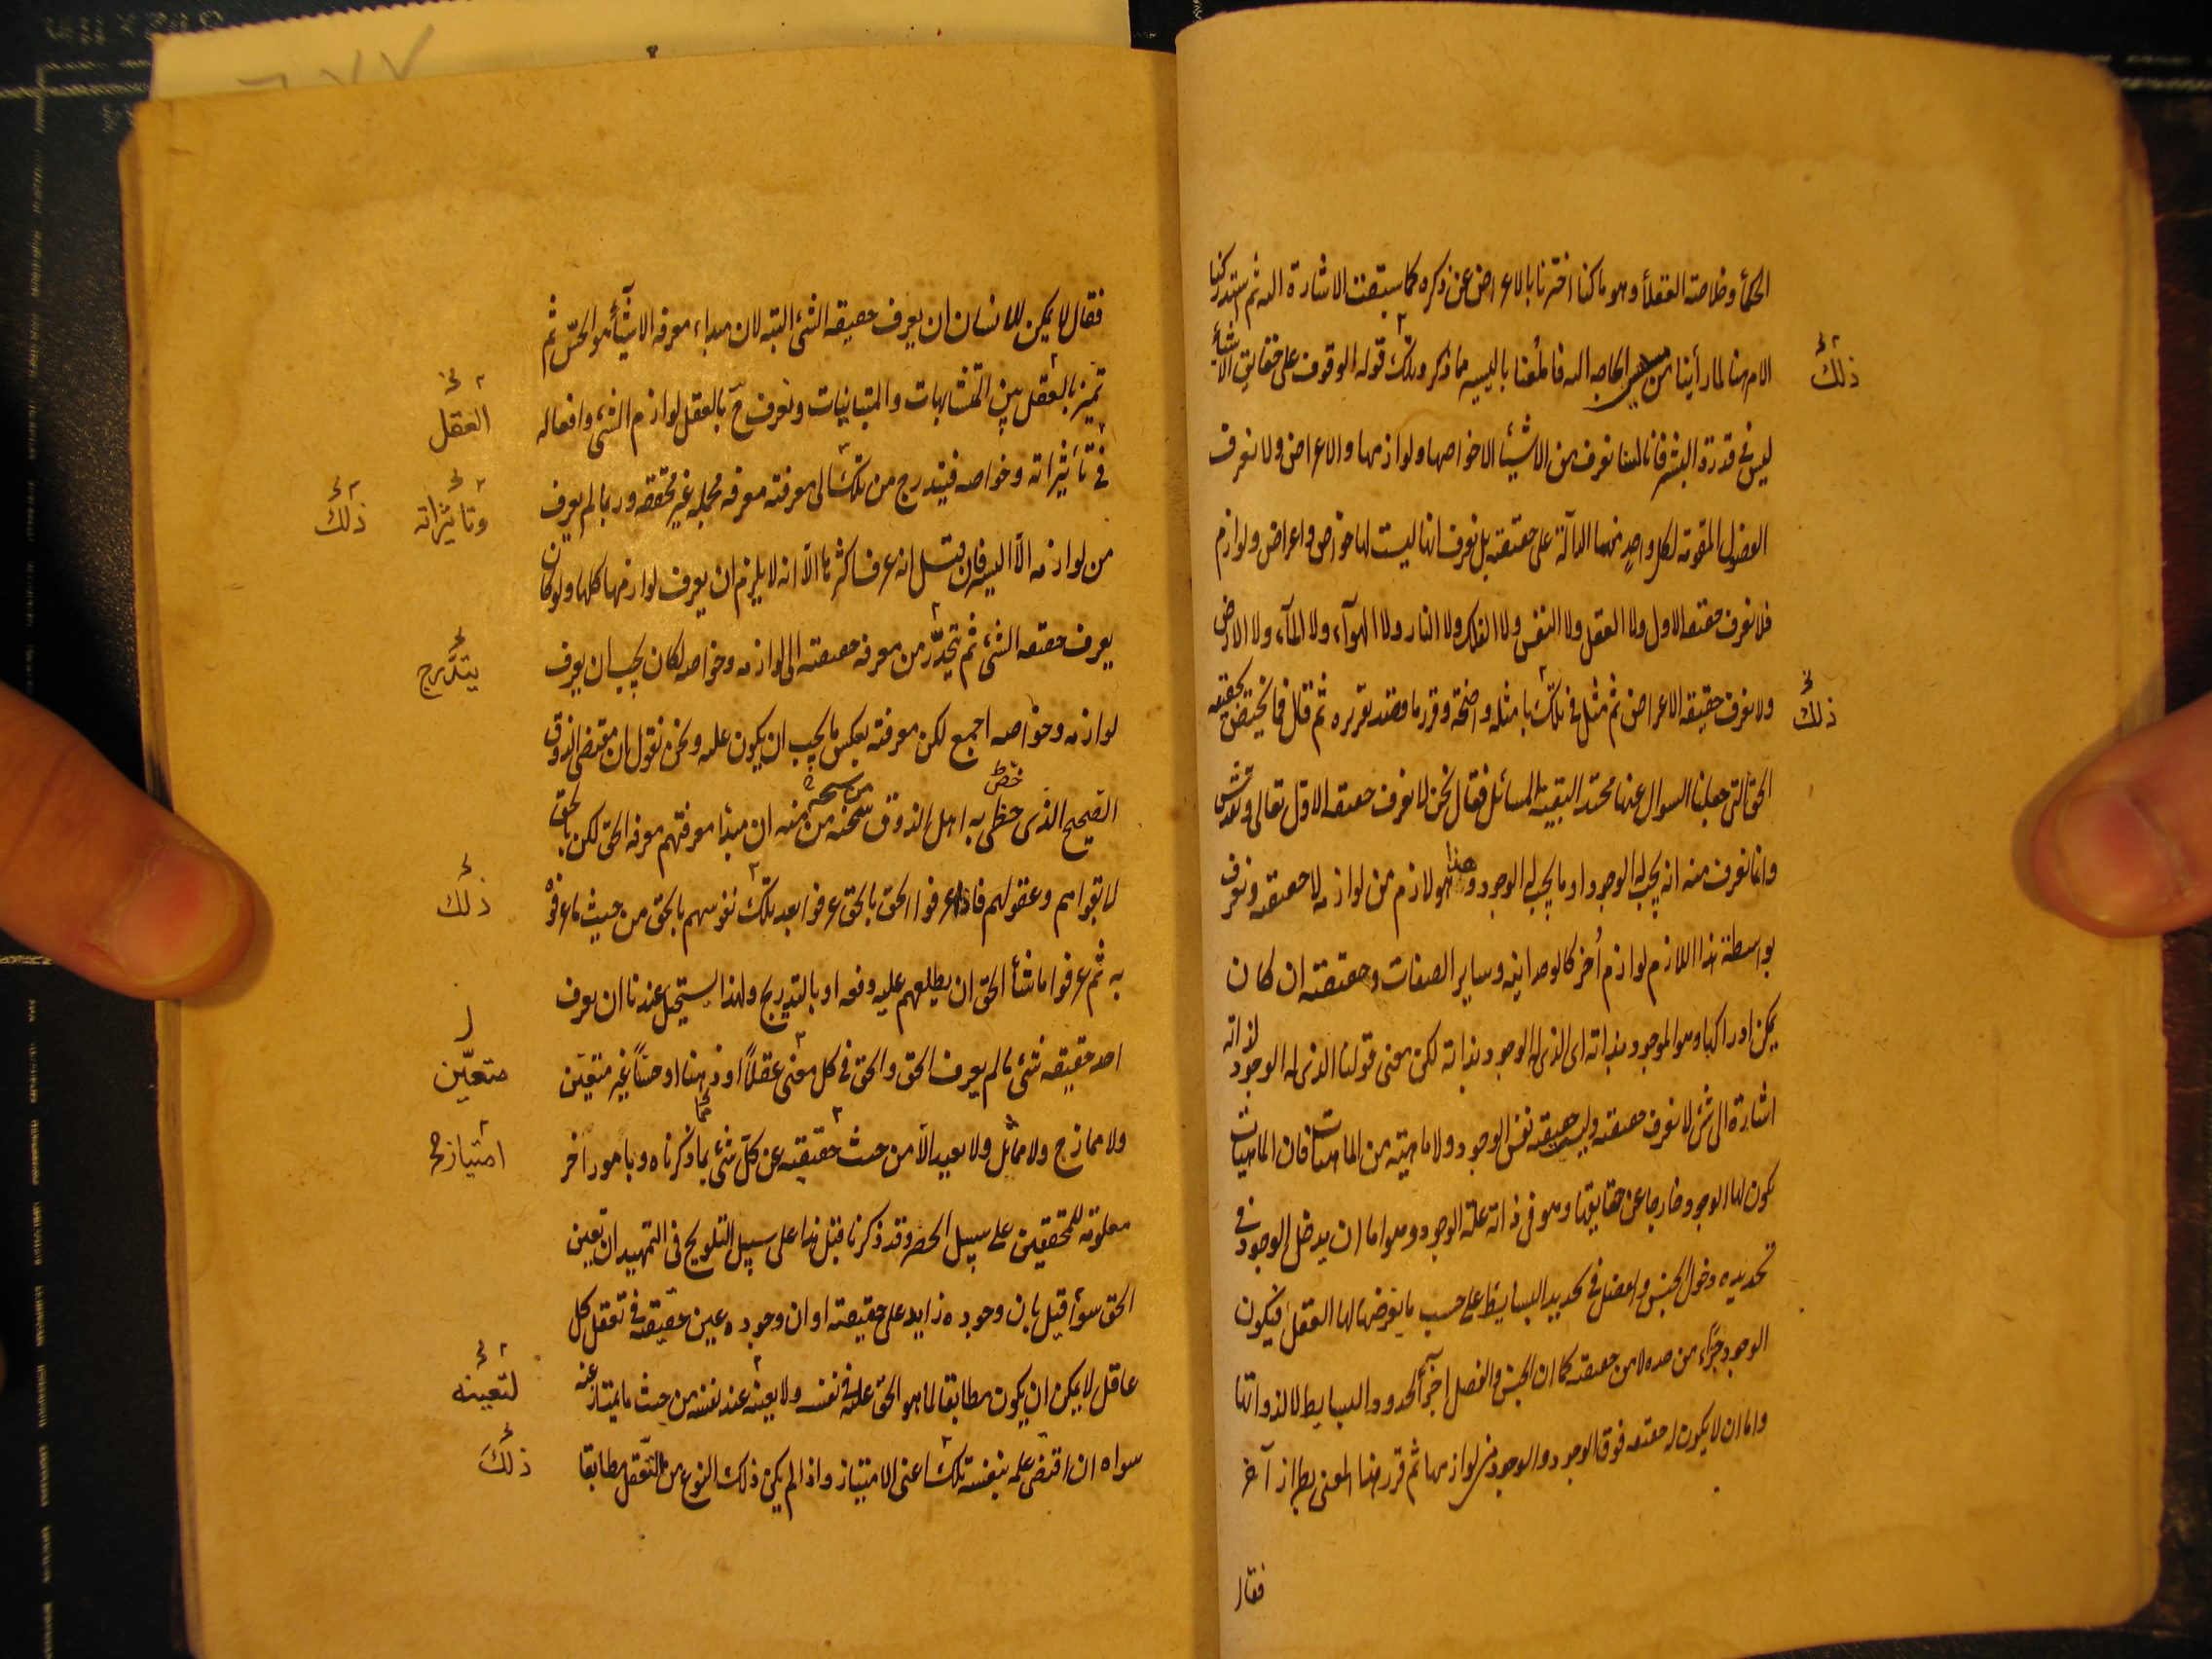 الحكمأ وخلاصة العقلأ وهو ما كنا اخترنا بالاعراض عن ذكره كما سبقت الاشارة اليه ثم استدركنا
الامر هنا لما رأينا من مسيس الحاجه اليه فالمعنا باليسير مما ذكر وتلك قوله الوقوف على حقايق الاشيأ
ذلك
ليس فى قدرة البشر فانا لسنا نعرف من الاشيأ الا خواصها ولوازمها والاعراض ولا نعرف
الفصول المقومة لكل واحدٍ منهما الدالّة على حقيقته بل نعرف انها ليست لها خواص واعراض ولوازم
فلا نعرف حقيقة الاول ولا العقل ولا النفس ولا الفلك ولا النار ولا الهوآء ولا المآء ولا الارض
ولا نعرف حقيقة الاعراض ثم مثل فى تلك بامثلة واضحة وقرر ما قصد تقريره ثم قال فما يختص بحقيقة
ذلك
الحق التى جعلنا السوال عنها محتد البقية المسائل فقال نحن لا نعرف حقيقة الاول تعالى وتقدس
وانما نعرف منه انه يجب له الوجود او ما يجب له الوجود وهذا هو لازم من لوازمه لا حقيقته ونعرف
بواسطة هذا اللازم لوازم أُخر كالوحدانية وساير الصفات وحقيقته ان كان
يمكن ادراكها وهو الموجود بذاته اى الذى له الوجود بذاته لكن معنى قولنا الذى له الوجود لذاته
اشارة الى شئ لا نعرف حقيقته وليس حقيقته نفس الوجود ولا ماهيته من الماهيات فان الماهيات
يكون لها الوجود خارجا عن حقايقها وهو فى ذاته علة الوجود وهو اما ان يدخل الوجود فى
تحديده دخول الجنس والفصل فى تحديد البسايط على حسب ما يفرضها لها العقل فيكون
الوجود جزءا من حده لا من حقيقته كما ان الجنس والفصل اجزأ لحدود البسايط لا لذواتها
واما ان لا يكون له حقيقة فوق الوجود والوجود من لوازمها ثم قرر هذا المعنى بطراز آخر
فقال
فقال لا يمكن للانسان ان يعرف حقيقة الشئ البتة لان مبداء معرفة الاشيأ هو الحسّ ثم
تميز بالعقل بين المتشابهات والمتباينات ونعرف ح بالعقل لوازم الشئ وافعاله
العقل
فى تأثيراته وخواصه فيتدرج من تلك الى معرفته معرفة مجملة غير محققة وربما لم يعرف
وتاثيراته ذلك
من لوازمه الّا اليسير فان قيل انه عرف اكثرها الّا انه لا يلزم ان يعرف لوازمها كلها ولو كان
يعرف حقيقة الشئ ثم يتحدّر من معرفة حقيقته الى لوازمه وخواصه لكان يجب ان يعرف
يتدَّرج
لوازمه وخواصه اجمع لكن معرفته بعكس ما يجب ان يكون عليه ونحن نقول بان مقتضى الذوق
الصحيح الذى حظى به اهل الذوق منحة من منه ان مبدأ معرفتهم معرفة الحق لكن بالحق
خصّ
لا بقواهم وعقولهم فاذا عرفوا الحق بالحق عرفوا بعد تلك نفوسهم بالحق من حيث ما عرفوْ
ذلك
به ثم عرفوا ما شأ الحق ان يطلعهم عليه دفعة او بالتدريج ولهذا يستحيل عندنا ان يعرف
احد حقيقة شئ ما لم يعرف الحق والحق فى كل معنى عقلاً او ذهنا او حسّاً غير متعيّن
متعيّن
ولا ممازج ولا مماثل ولا بعيد الّا من حيث حقيقته عن كل شئ بما ذكرناه وبامور اخر
امتيازه
معلومة للمحققين على سبيل الحصر وقد ذكرنا قبل هذا على سبيل التلويح فى التمهيد ان تعين
الحق سوأ قيل بان وجوده زايد على حقيقته او ان وجوده عين حقيقته فى تعقل كل
عاقل لا يمكن ان يكون مطابقا لما هو الحق عليه فى نفسه ولا يعينه عند نفسه من حيث ما يمتاز عنه
لتعينه
سواه ان اقتضى علمه بنفسه تلك اعنى الامتياز واذا لم يكن ذلك النوع من التعقل مطابقا
ذلك